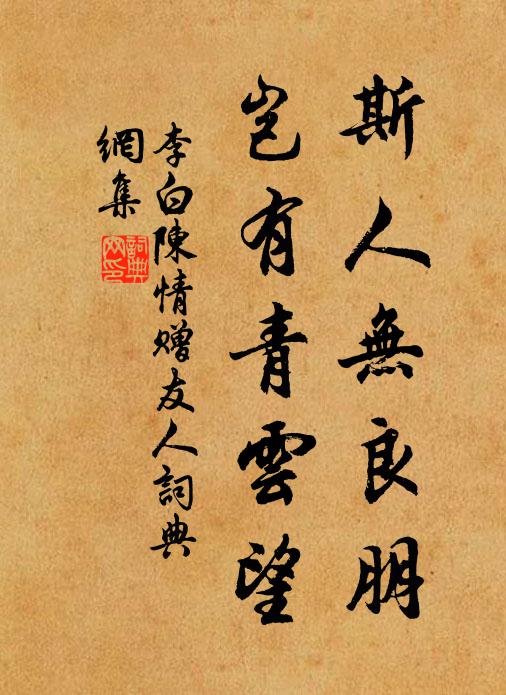 斯人無良朋
豈有青雲望
李白陳情贈友人詞典
網集
詞典
网印